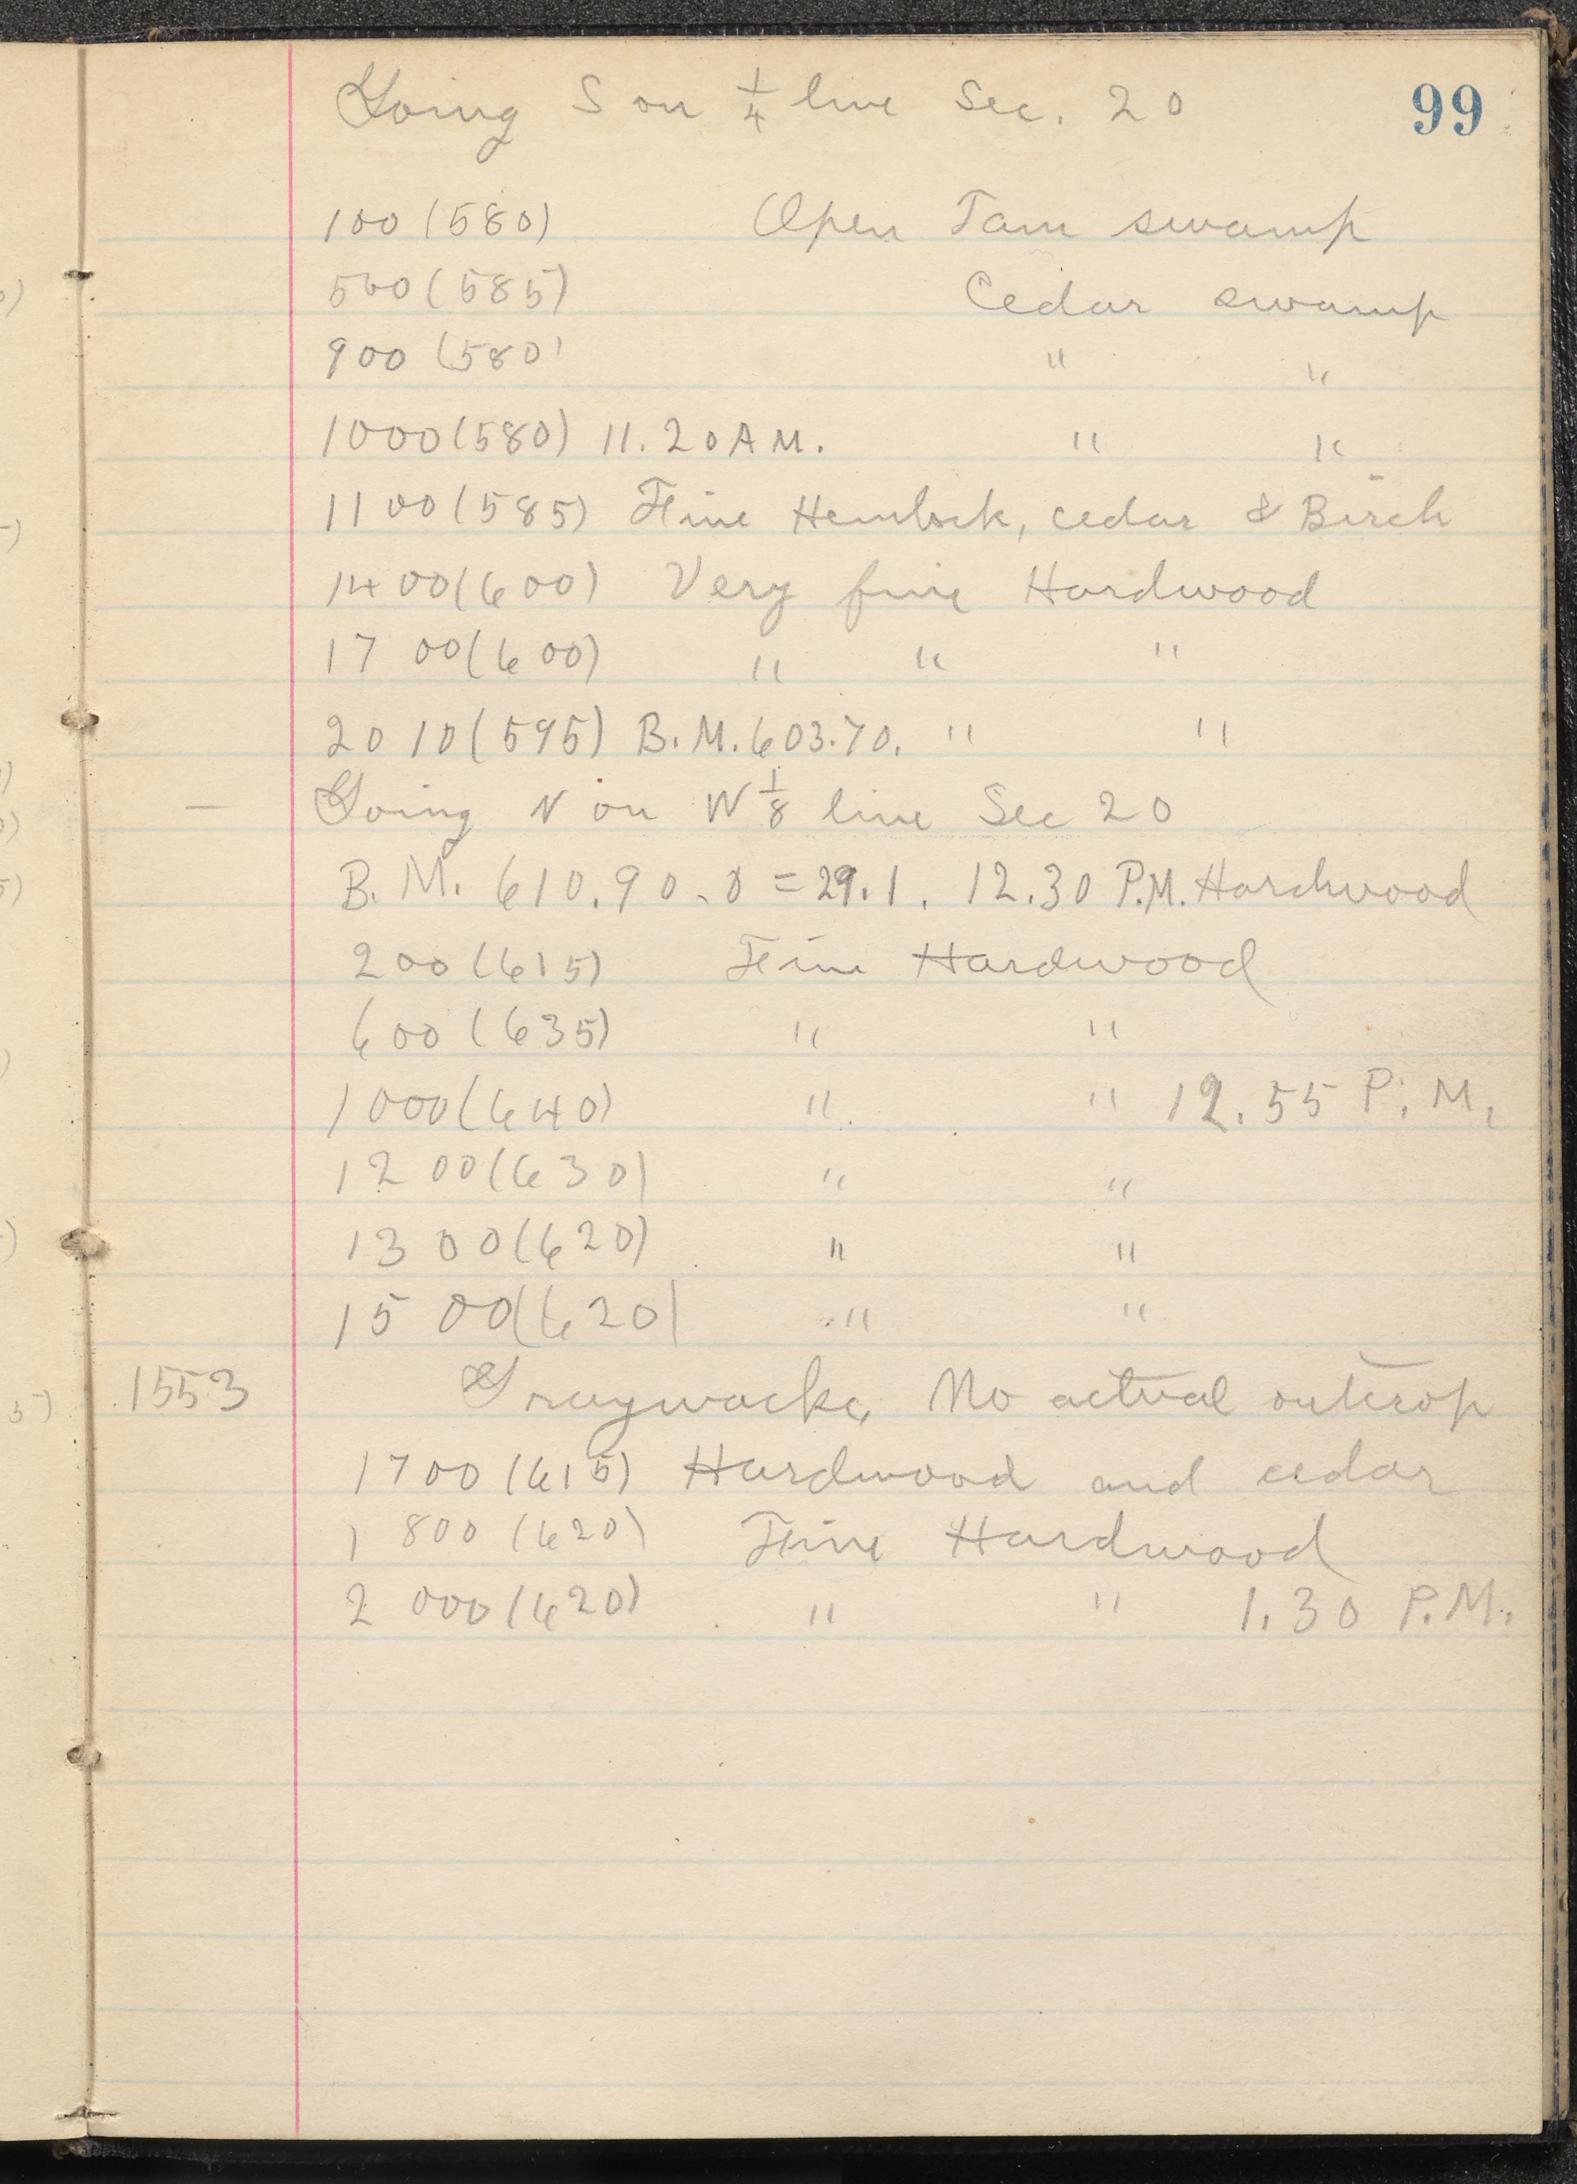 99
Going S on 1/4 line Sec. 20
100 (580) Open Tam swamp
500 (585) Cedar swamp
900 (580) " "
1000 (580) 11.20 A M. " "
1100 (585) Fine Hemlock, cedar & Birch
1400 (600) Very fine Hardwood
1700 (600) " " "
2010 (595) B.M. 603.70. " "
— Going N on W 1/8 line Sec 20
B.M. 610.90. 0 = 29.1. 12.30 P.M. Hardwood
200 (615) Fine Hardwood
600 (635) " "
1000 (640) " " 12.55 P.M.
1200 (630) " "
1300 (620) " "
1500 (620) " "
1553 Graywacke, No actual outcrop
1700 (615) Hardwood and cedar
1800 (620) Fine Hardwood
2000 (620) " " 1.30 P.M.